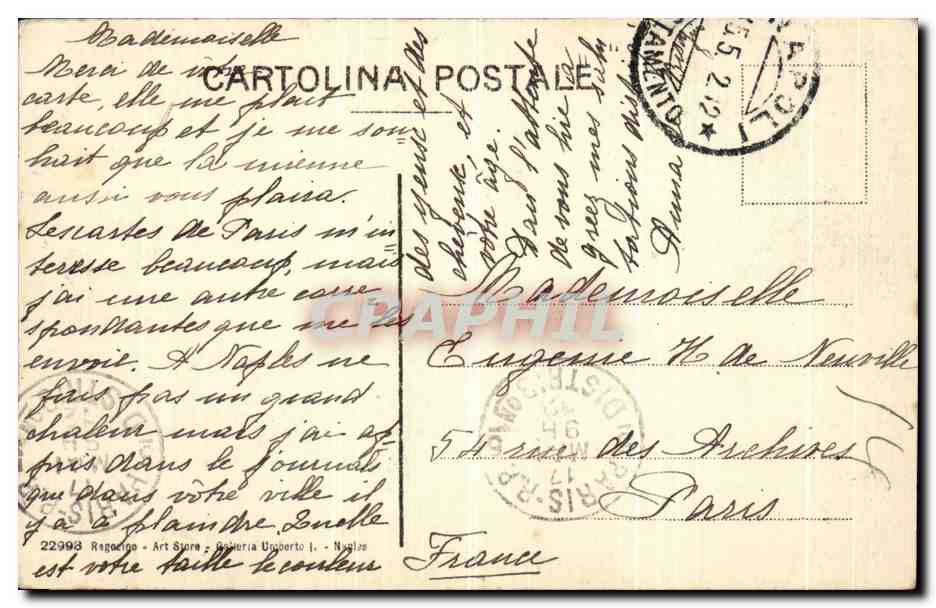 Mademoiselle
Merci de vôtre
carte, elle me plait
beaucoup et je me sou
hait que la mienne
aussi vous plaira.
Les cartes de Paris m'in
teresse beaucoup, mais
j'ai une autre corre
spondantes que me les
envoie. A Naples ne
fais pas un grand
chaleur mais j'ai ap
pris dans le journals
que dans vôtre ville il
y a à plaindre. Quelle
est votre taille le couleur
des yeux et des
cheveux, et
vôtre âge.
Dans l'attente
de vous lire a
greez mes salu
tations dist.
Anna
CARTOLINA POSTALE
NAPOLI
15 5.2.12
Mademoiselle
Eugenie H. de Neuville
54 rue des Archives
Paris
France
PARIS R.P.
DISTRIBON
17
CPAPHIL
22993 Ragozino - Art Store - Galleria Umberto I. - Naples